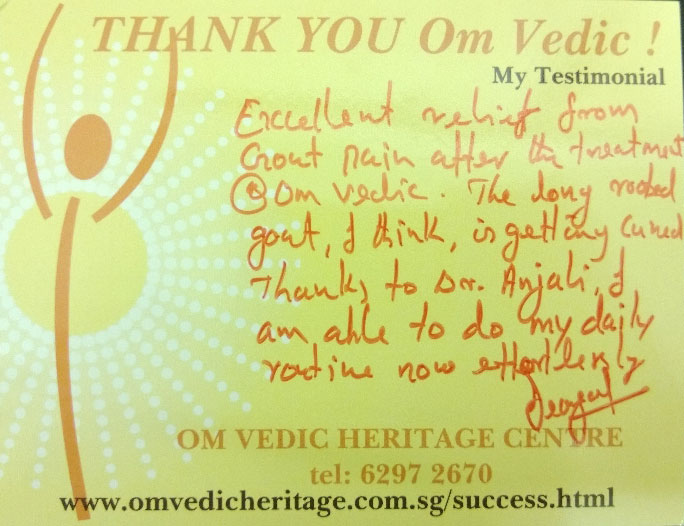 THANK YOU Om Vedic !
My Testimonial
Excellent relief from
Gout pain after the treatment
@ Om Vedic. The long rooted
gout, I think, is getting cured
Thanks to Dr. Anjali, I
am able to do my daily
routine now effortlessly
OM VEDIC HERITAGE CENTRE
tel: 6297 2670
www.omvedicheritage.com.sg/success.html